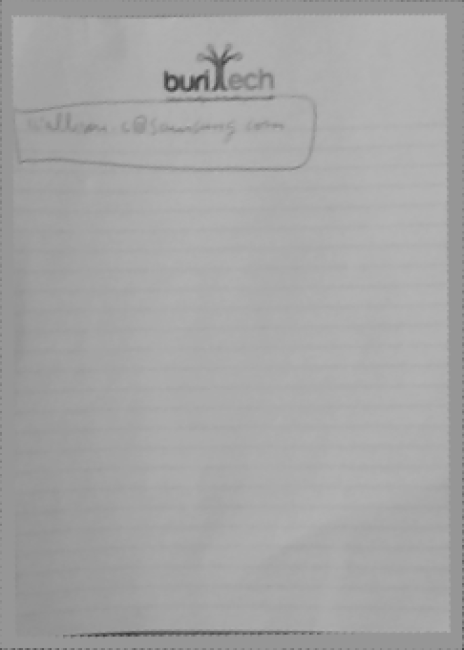 buriTech
william.c@samsung.com